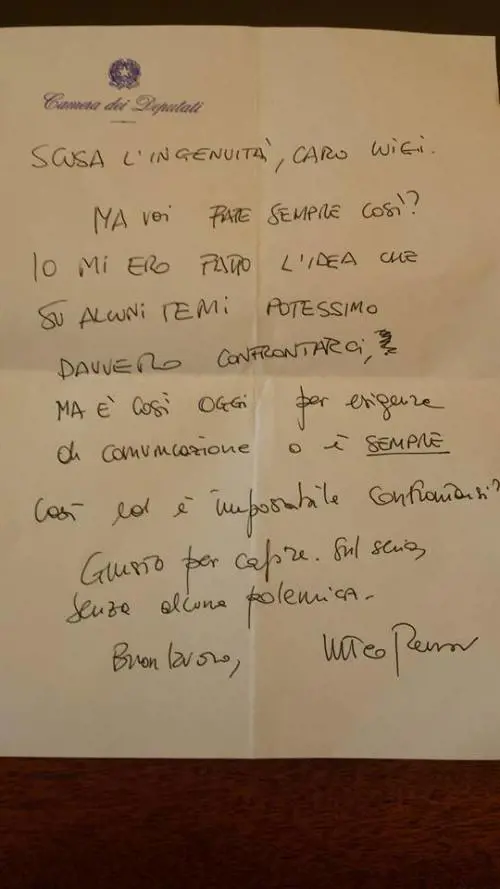 Camera dei Deputati
SCUSA L'INGENUITÀ, CARO LUIGI.
MA VOI FATE SEMPRE COSÌ?
IO MI ERO FATTO L'IDEA CHE
SU ALCUNI TEMI POTESSIMO
DAVVERO CONFRONTARCI,
MA È COSÌ OGGI per esigenze
di comunicazione o è SEMPRE
così ed è impossibile confrontarsi?
Giusto per capire. Sul serio,
senza alcuna polemica.
Buon lavoro, Matteo Renzi